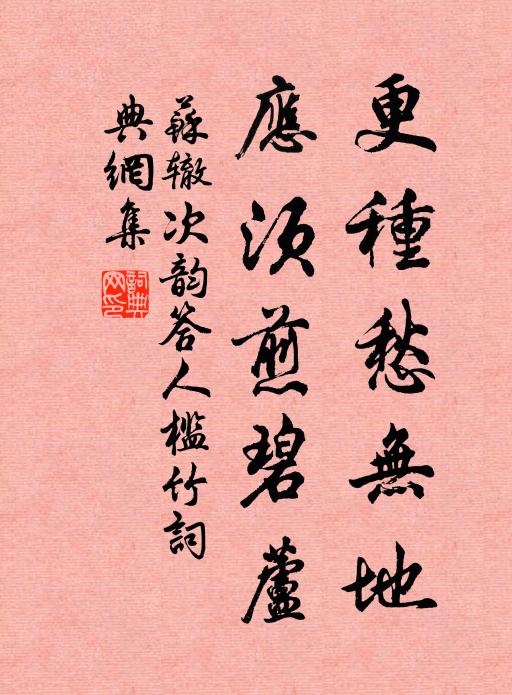 更種愁無地
應須煎碧蘆
蘇辙次韵答人檻竹詞
典網集
詞典网印